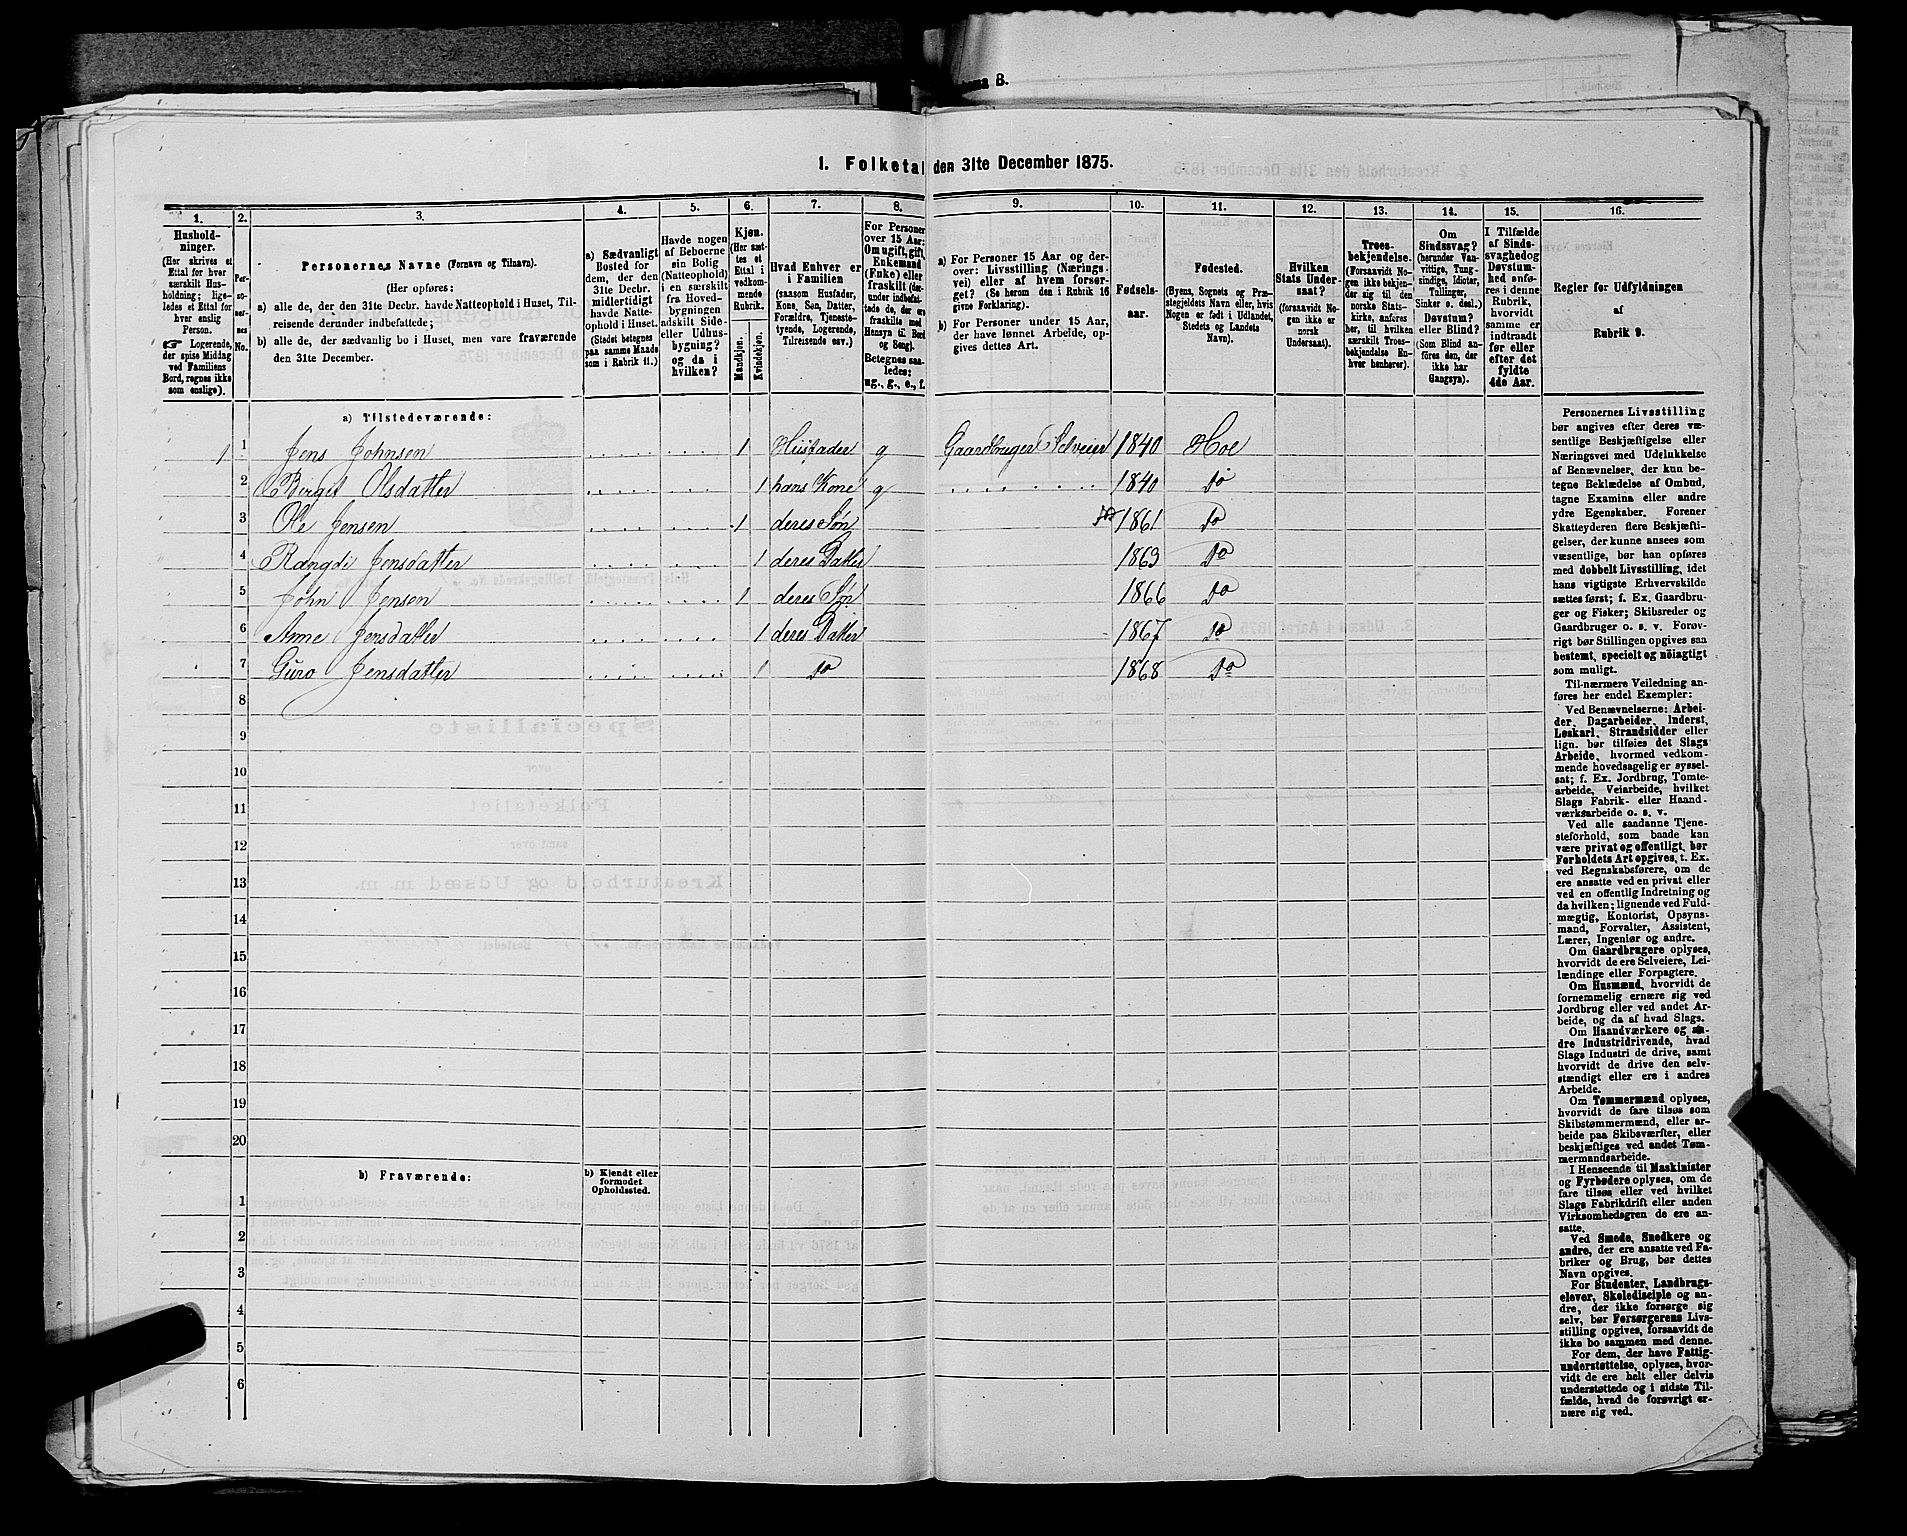 Schema B.
1. Folketal den 31te December 1875.
1. 2. 3. 4. 5. 6. 7. 8. 9. 10. 11. 12. 13. 14. 15. 16.
Hushold-
ninger.
(Her skrives et
Ettal for hver
særskilt Hus-
holdning; lige-
ledes et Ettal for
hver enslig
Person.
☞ Logerende,
der spise Middag
ved Familiens
Bord, regnes ikke
som enslige).
Per-
so-
ner-
nes
No.
Personernes Navne (Fornavn og Tilnavn).
(Her opføres:
a) alle de, der den 31te Decbr. havde Natteophold i Huset, Til-
reisende derunder indbefattede;
b) alle de, der sædvanlig bo i Huset, men vare fraværende
den 31te December.
a) Sædvanligt
Bosted for
dem, der den
31te Decbr.
midlertidigt
havde Natte-
ophold i Huset.
(Stedet betegnes
paa samme Maade
som i Rubrik 11.)
Havde nogen
af Beboerne
sin Bolig
(Natteophold)
i en særskilt
fra Hoved-
bygningen
adskilt Side-
eller Udhus-
bygning?
og da i
hvilken?
Kjøn.
(Her sæt-
tes et
Ettal i
vedkom-
mende
Rubrik.
Mandkjøn.
Kvindekjøn.
Hvad Enhver er
i Familien
(saasom Husfader,
Kone, Søn, Datter,
Forældre, Tjeneste-
tyende, Logerende,
Tilreisende osv.)
For Personer
over 15 Aar:
Om ugift, gift,
Enkemand
(Enke) eller
fraskilt (der-
under indbefat-
tede de, der ere
fraskilte med
Hensyn til Bord
og Seng).
Betegnes saa-
ledes:
ug., g., e., f.
a) For Personer 15 Aar og der-
over: Livsstilling (Nærings-
vei) eller af hvem forsør-
get? (Se herom den i Rubrik 16
givne Forklaring).
b) For Personer under 15 Aar,
der have lønnet Arbeide, op-
gives dettes Art.
Fødsels-
aar.
Fødested.
(Byens, Sognets og Præ-
stegjeldets Navn eller, hvis
Nogen er født i Udlandet,
Stedets og Landets
Navn).
Hvilken
Stats Under-
saat?
(forsaavidt No-
gen ikke er
norsk
Undersaat).
Troes-
bekjendelse.
(Forsaavidt No-
gen ikke bekjen-
der sig til den
norske Stats-
kirke, anføres
her, til hvilken
særskilt Troes-
bekjendelse En-
hver henhører).
Om
Sindssvag?
(herunder Van-
vittige, Tung-
sindige, Idioter,
Tullinger,
Sinker o. desl.)
Døvstum?
eller Blind?
(Som Blind an-
føres den, der
ikke har
Gangsyn).
I Tilfælde
af Sinds-
svaghed og
Døvstum-
hed anfø-
res i denne
Rubrik,
hvorvidt
samme er
indtraadt
før eller
efter det
fyldte
4de Aar.
Regler for Udfyldningen
af
Rubrik 9.
a) Tilstedeværende:
1 1 Jens Johnsen 1 Husfader g Gaardbruger Selveier 1840 Hoe
2 Berget Olsdatter 1 hans Kone g 1840 do
3 Ole Jensen 1 deres Søn 1861 do
4 Rangdi Jensdatter 1 deres Datter 1863 do
5 John Jensen 1 deres Søn 1866 do
6 Arne Jensdatter 1 deres Datter 1867 do
7 Guro Jensdatter 1 do 1868 do
8
9
10
11
12
13
14
15
16
17
18
19
20
b) Fraværende:
b) Kjendt eller
formodet
Opholdssted.
1
2
3
4
5
6
Personernes Livsstilling
bør angives efter deres væ-
sentlige Beskjæftigelse eller
Næringsvei med Udelukkelse
af Benævnelser, der kun be-
tegne Beklædelse af Ombud,
tagne Examina eller andre
ydre Egenskaber. Forener
Skatteyderen flere Beskjæfti-
gelser, der kunne ansees som
væsentlige, bør han opføres
med dobbelt Livsstilling, idet
hans vigtigste Erhvervskilde
sættes først; f. Ex. Gaardbru-
ger og Fisker; Skibsreder og
Gaardbruger o. s. v. Forøv-
rigt bør Stillingen opgives saa
bestemt, specielt og nøiagtigt
som muligt.
Til nærmere Veiledning an-
føres her endel Exempler:
Ved Benævnelserne: Arbei-
der, Dagarbeider, Inderst,
Løskarl, Strandsidder eller
lign. bør tilføies det Slags
Arbeide, hvormed vedkom-
mende hovedsagelig er syssel-
sat; f. Ex. Jordbrug, Tomte-
arbeide, Veiarbeide, hvilket
Slags Fabrik- eller Haand-
værksarbeide o. s. v.
Ved alle saadanne Tjene-
steforhold, som baade kan
være privat og offentligt, bør
Forholdets Art opgives, t. Ex.
ved Regnskabsførere, om de
ere ansatte ved en privat eller
ved en offentlig Indretning og
da hvilken; lignende ved Fuld-
mægtig, Kontorist, Opsyns-
mand, Forvalter, Assistent,
Lærer, Ingeniør og andre.
Om Gaardbrugere oplyses,
hvorvidt de ere Selveiere, Lei-
lændinge eller Forpagtere.
Om Husmænd, hvorvidt de
fornemmelig ernære sig ved
Jordbrug eller ved andet Ar-
beide, og da af hvad Slags.
Om Haandværkere og an-
dre Industridrivende, hvad
Slags Industri de drive, samt
hvorvidt de drive den selv-
stændigt eller ere i andres
Arbeide.
Om Tømmermænd oplyses,
hvorvidt de fare tilsøs som
Skibstømmermænd, eller ar-
beide paa Skibsværfter, eller
beskjæftiges ved andet Tøm-
mermandsarbeide.
I Henseende til Maskinister
og Fyrbødere oplyses, om de
fare tilsøs eller ved hvilket
Slags Fabrikdrift eller anden
Virksomhedsgren de ere an-
satte.
Ved Smede, Snedkere og
andre, der ere ansatte ved Fa-
briker og Brug, bør dettes
Navn opgives.
For Studenter, Landbrugs-
elever, Skoledisciple og an-
dre, der ikke forsørge sig
selv, bør Forsørgerens Livs-
stilling opgives, forsaavidt de
ikke bo sammen med denne.
For dem, der have Fattig-
understøttelse, oplyses, hvor-
vidt de ere helt eller delvis
understøttede og i sidste Til-
fælde, hvad de forøvrigt er-
nære sig ved.